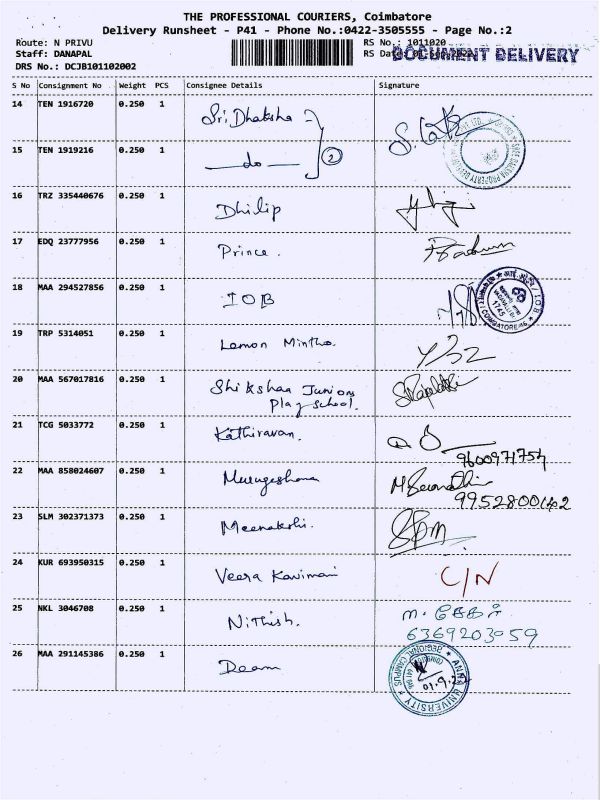 THE PROFESSIONAL COURIERS, Coimbatore
Delivery Runsheet - P41 - Phone No.:0422-3505555 - Page No.:2
Route: N PRIVU
RS No.: 1011020
Staff: DANAPAL
DOCUMENT DELIVERY
DRS No.: DCJB101102002
S No Consignment No Weight PCS Consignee Details Signature
14 TEN 1916720 0.250 1 Sri Dhaksha
15 TEN 1919216 0.250 1 do 2
16 TRZ 335440676 0.250 1 Dhilip
17 EDQ 23777956 0.250 1 Prince.
18 MAA 294527856 0.250 1 IOB
19 TRP 5314051 0.250 1 Lemon Mintho.
20 MAA 567017816 0.250 1 Shikshaa Juniors
Play school.
21 TCG 5033772 0.250 1 Kathiravan.
9600971754
22 MAA 858024607 0.250 1
9952800142
23 SLM 302371373 0.250 1 Meenakshi.
24 KUR 693950315 0.250 1 Veera Kavimani C/N
25 NKL 3046708 0.250 1 Nithish. ம. சேகர்
6369203059
26 MAA 291145386 0.250 1 Deam
ANNA UNIVERSITY
REGIONAL CAMPUS
01.9.22